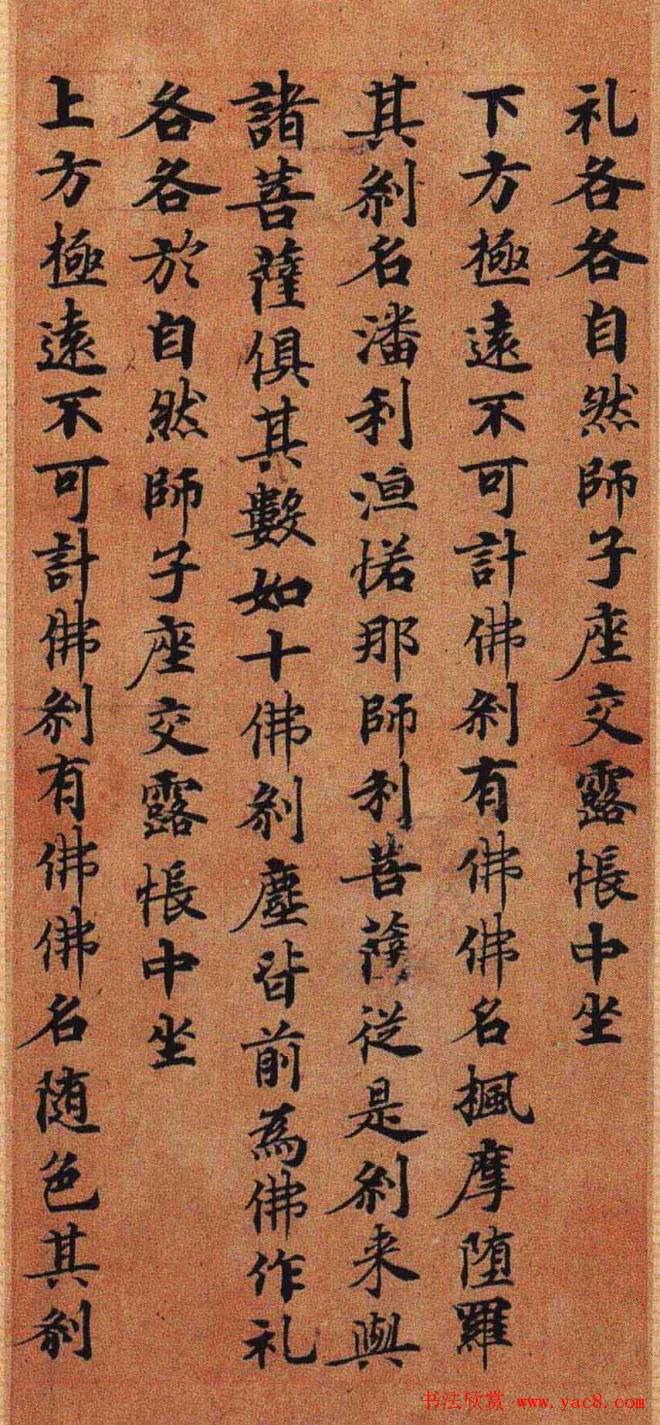 礼各各自然師子座交露帳中坐
下方極遠不可計佛刹有佛佛名楓摩堕羅
其刹名潘利洹惒那師利菩薩從是刹来與
諸菩薩俱其數如十佛刹塵皆前為佛作礼
各各於自然師子座交露帳中坐
上方極遠不可計佛刹有佛佛名随色其刹
书法欣赏 www.yac8.com